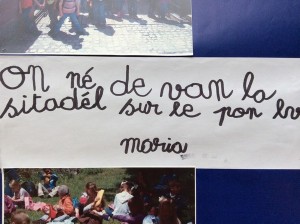 on né de van la
sitadél sur le pon lv
maria